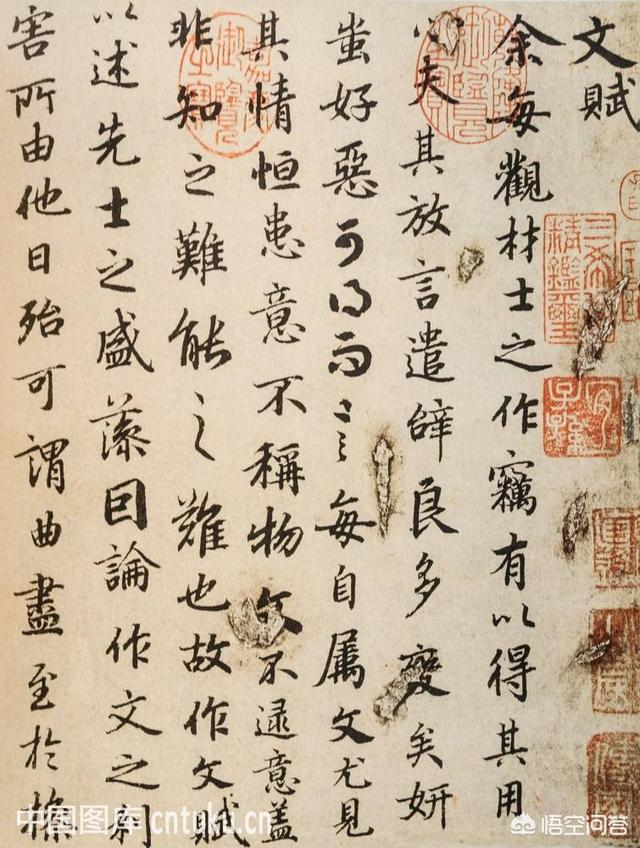 文賦
余每觀材士之作竊有以得其用
心夫其放言遣辞良多變矣妍
蚩好惡可得而言每自属文尤見
其情恒患意不稱物文不逮意盖
非知之難能之難也故作文賦
以述先士之盛藻因論作文之利
害所由他日殆可謂曲盡至於操
三希堂精鑑璽
宜子孫
中国图库 cntuku.cn
悟空问答